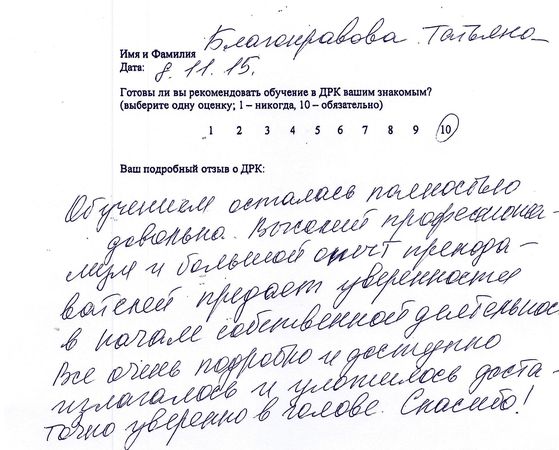 Имя и Фамилия Благонравова Татьяна
Дата: 8.11.15.
Готовы ли вы рекомендовать обучение в ДРК вашим знакомым?
(выберите одну оценку; 1 – никогда, 10 – обязательно)
1 2 3 4 5 6 7 8 9 10
Ваш подробный отзыв о ДРК:
Обучением осталась полностью
довольна. Высокий профессиона-
лизм и большой опыт препода-
вателей предает уверенности
в начале собственной деятельности
Все очень подробно и доступно
излагалось и уложилось доста-
точно уверенно в голове. Спасибо!